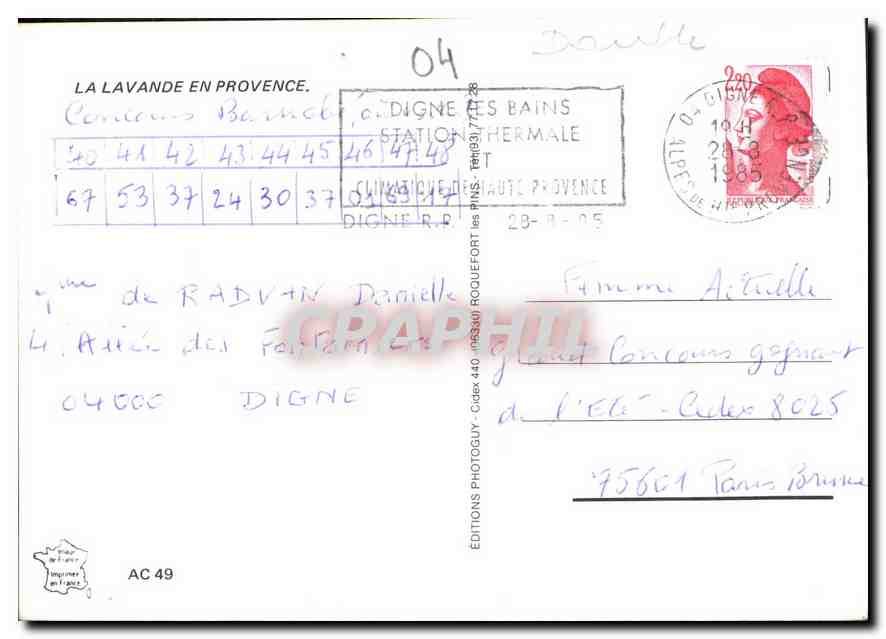 04
Double
LA LAVANDE EN PROVENCE.
Concours
40 41 42 43 44 45 46 47 48
67 53 37 24 30 37 01 69 17
DIGNE LES BAINS
STATION THERMALE
ET
CLIMATIQUE DE HAUTE PROVENCE
DIGNE R.P. 28-8-85
2,20
04 DIGNE R.P.
19H
28-8
1985
ALPES DE HTE PR.
REPUBLIQUE FRANÇAISE
Mme de RADVAN Danielle
4 Allée des Fontainiers
04000 DIGNE
Femme Actuelle
grand Concours gagnant
de l'Eté - Cedex 8025
75601 Paris Brune
EDITIONS PHOTOGUY - Cidex 440 - (06330) ROQUEFORT les PINS - Tél.(93) 77.17.28
CPAPHIL
Tour
de France
Imprimer
en France
AC 49